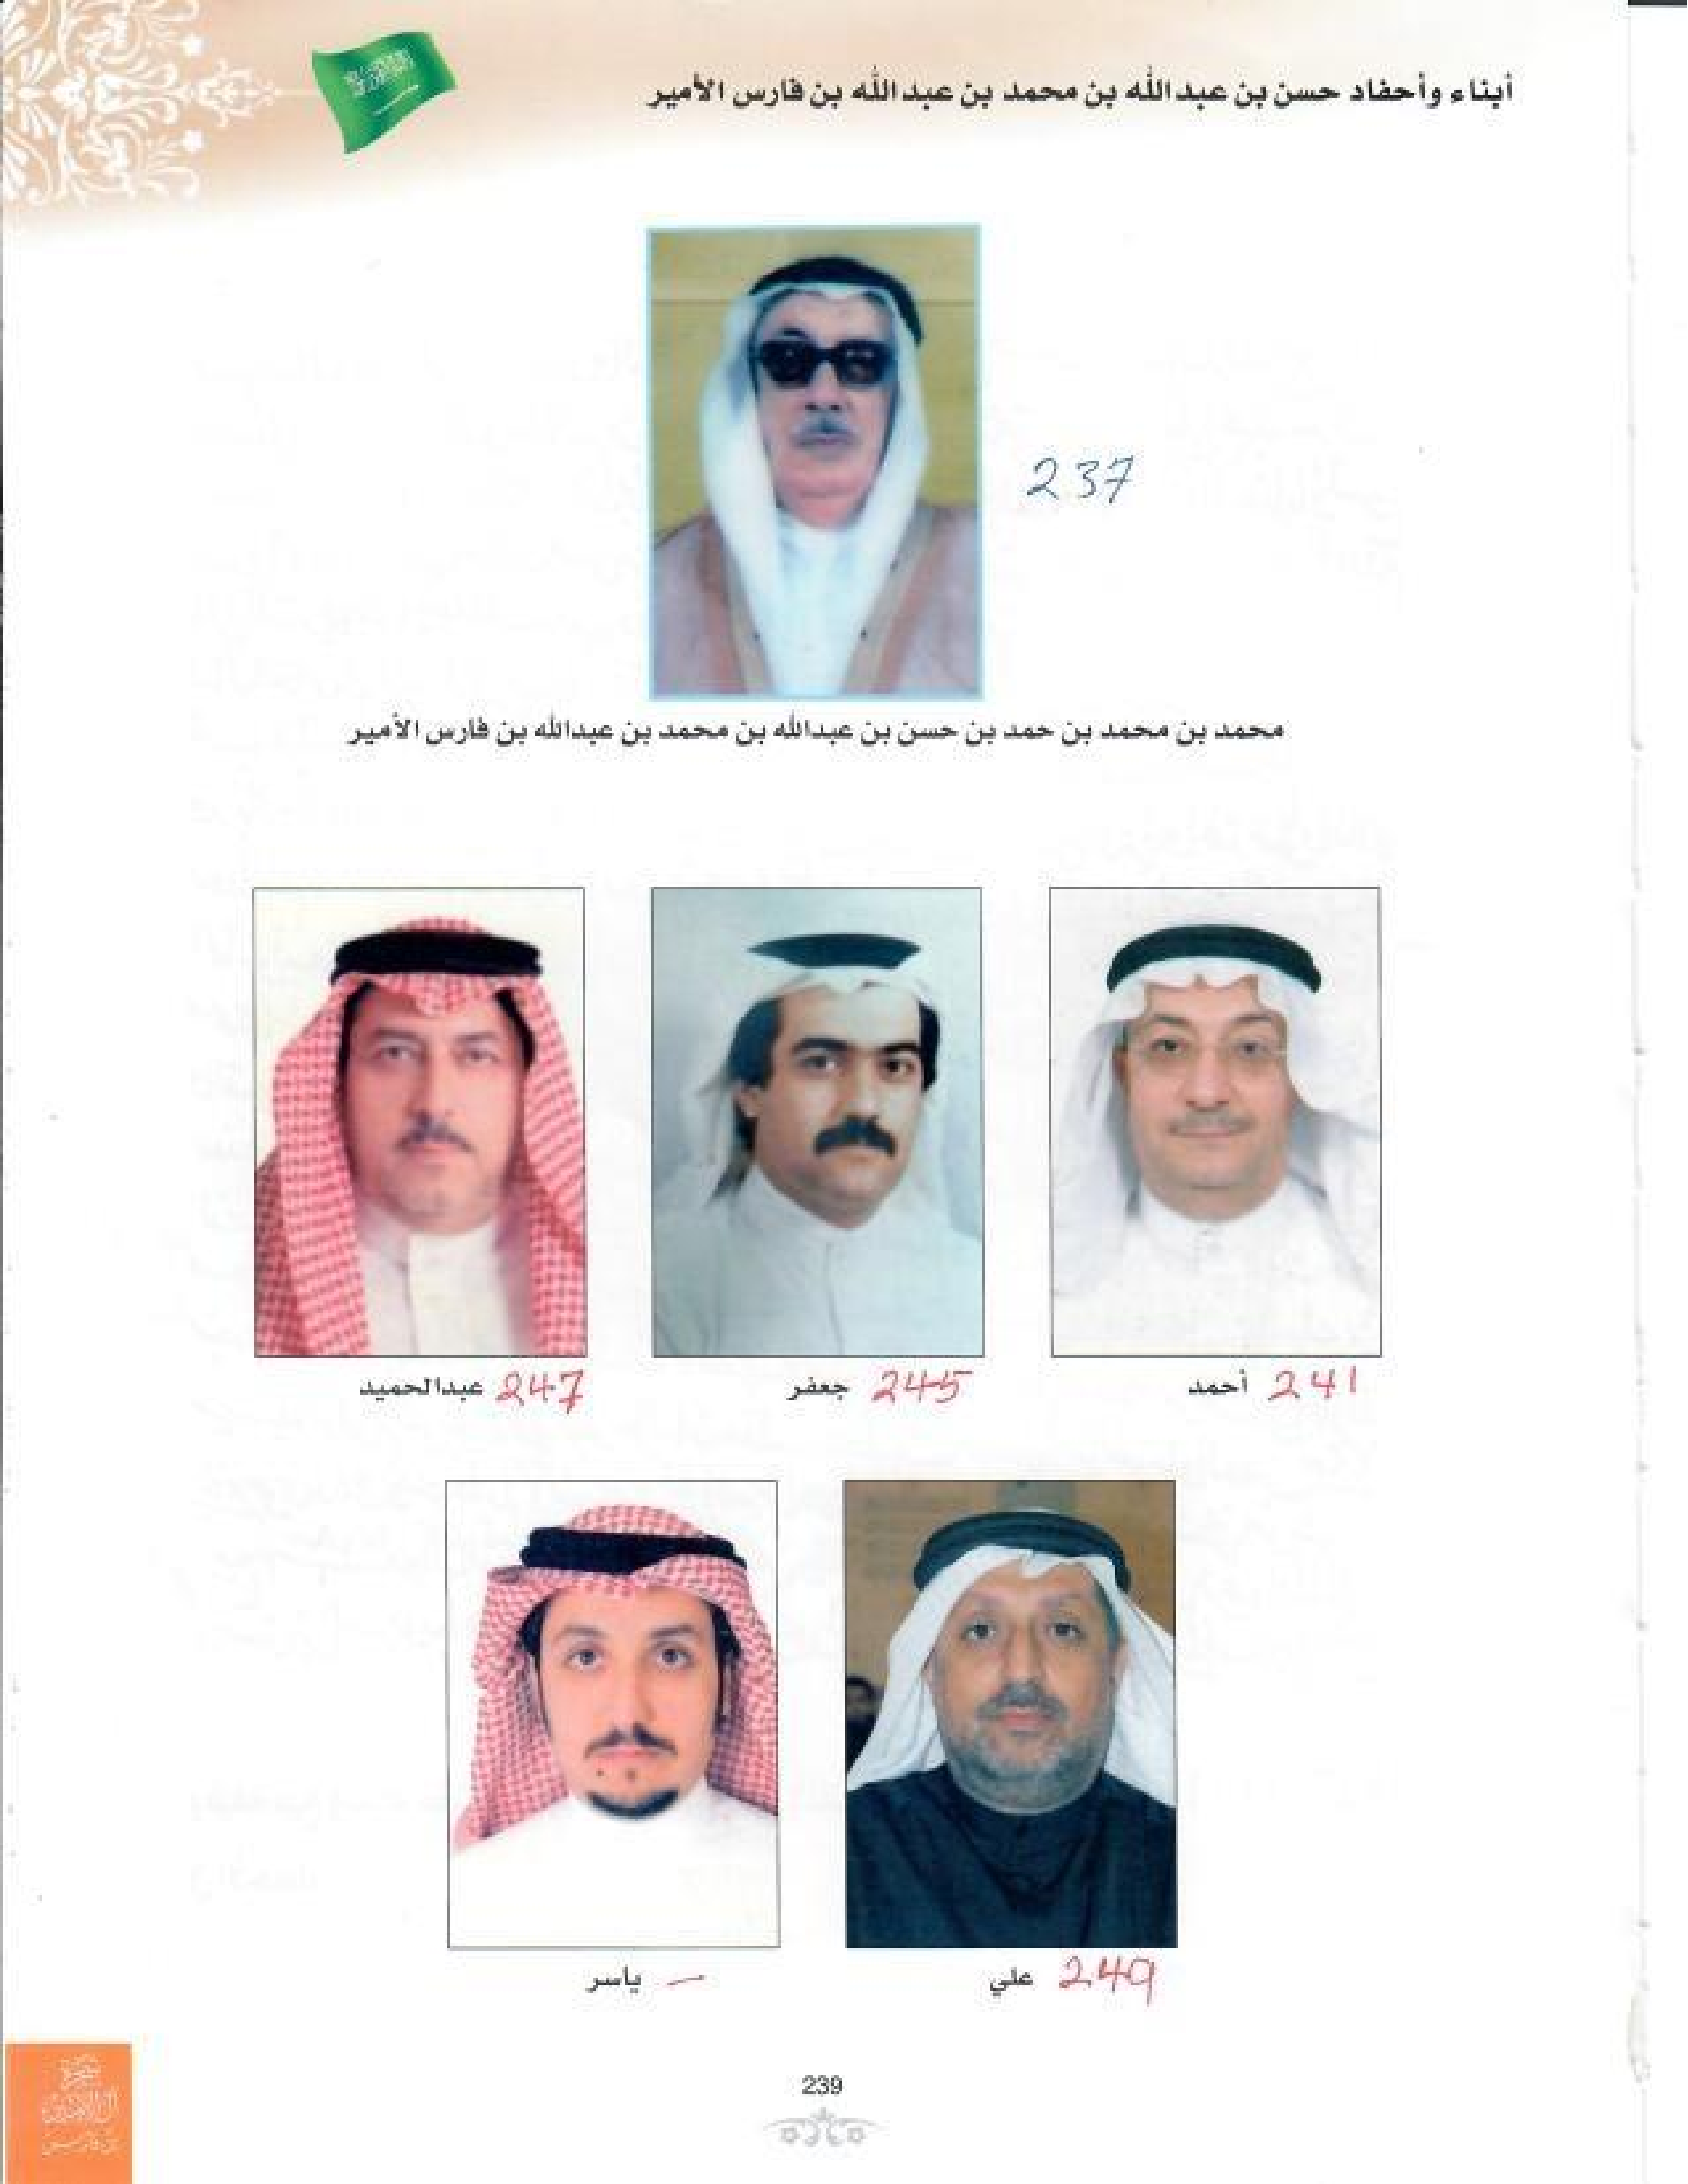 أبناء وأحفاد حسن بن عبدالله بن محمد بن عبدالله بن فارس الأمير
237
محمد بن محمد بن حمد بن حسن بن عبدالله بن محمد بن عبدالله بن فارس الأمير
241 أحمد
245 جعفر
247 عبدالحميد
249 علي
— ياسر
239